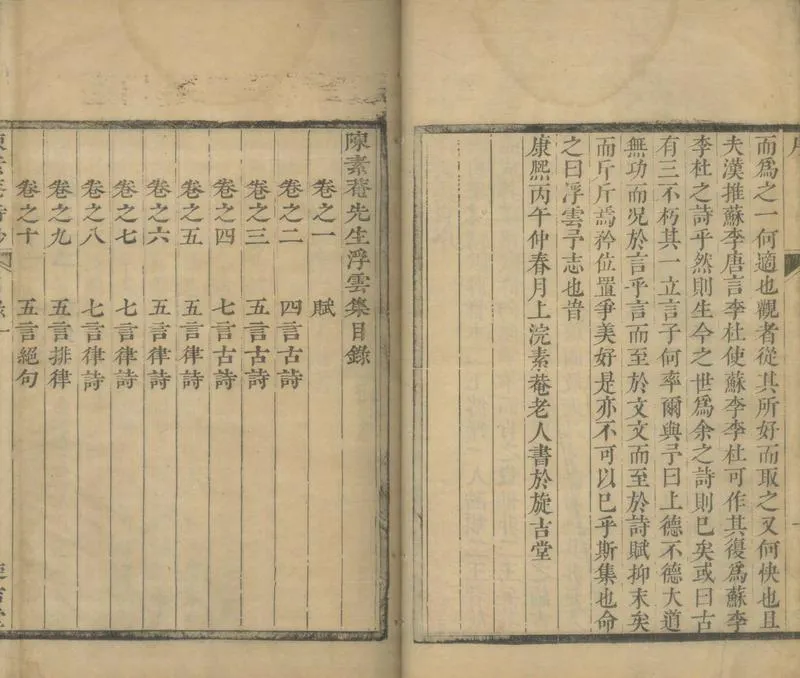 而為之一何適也觀者從其所好而取之又何快也且
夫漢推蘇李唐言李杜使蘇李李杜可作其復為蘇李
李杜之詩乎然則生今之世為余之詩則已矣或曰古
有三不朽其一立言子何率爾與予曰上德不德大道
無功而况於言乎言而至於文文而至於詩賦抑末矣
而斤斤焉矜位置爭美好是亦不可以已乎斯集也命
之曰浮雲予志也昔
康熙丙午仲春月上浣素菴老人書於旋吉堂
陳素菴先生浮雲集目錄
卷之一 賦
卷之二 四言古詩
卷之三 五言古詩
卷之四 七言古詩
卷之五 五言律詩
卷之六 五言律詩
卷之七 七言律詩
卷之八 七言律詩
卷之九 五言排律
卷之十 五言絕句